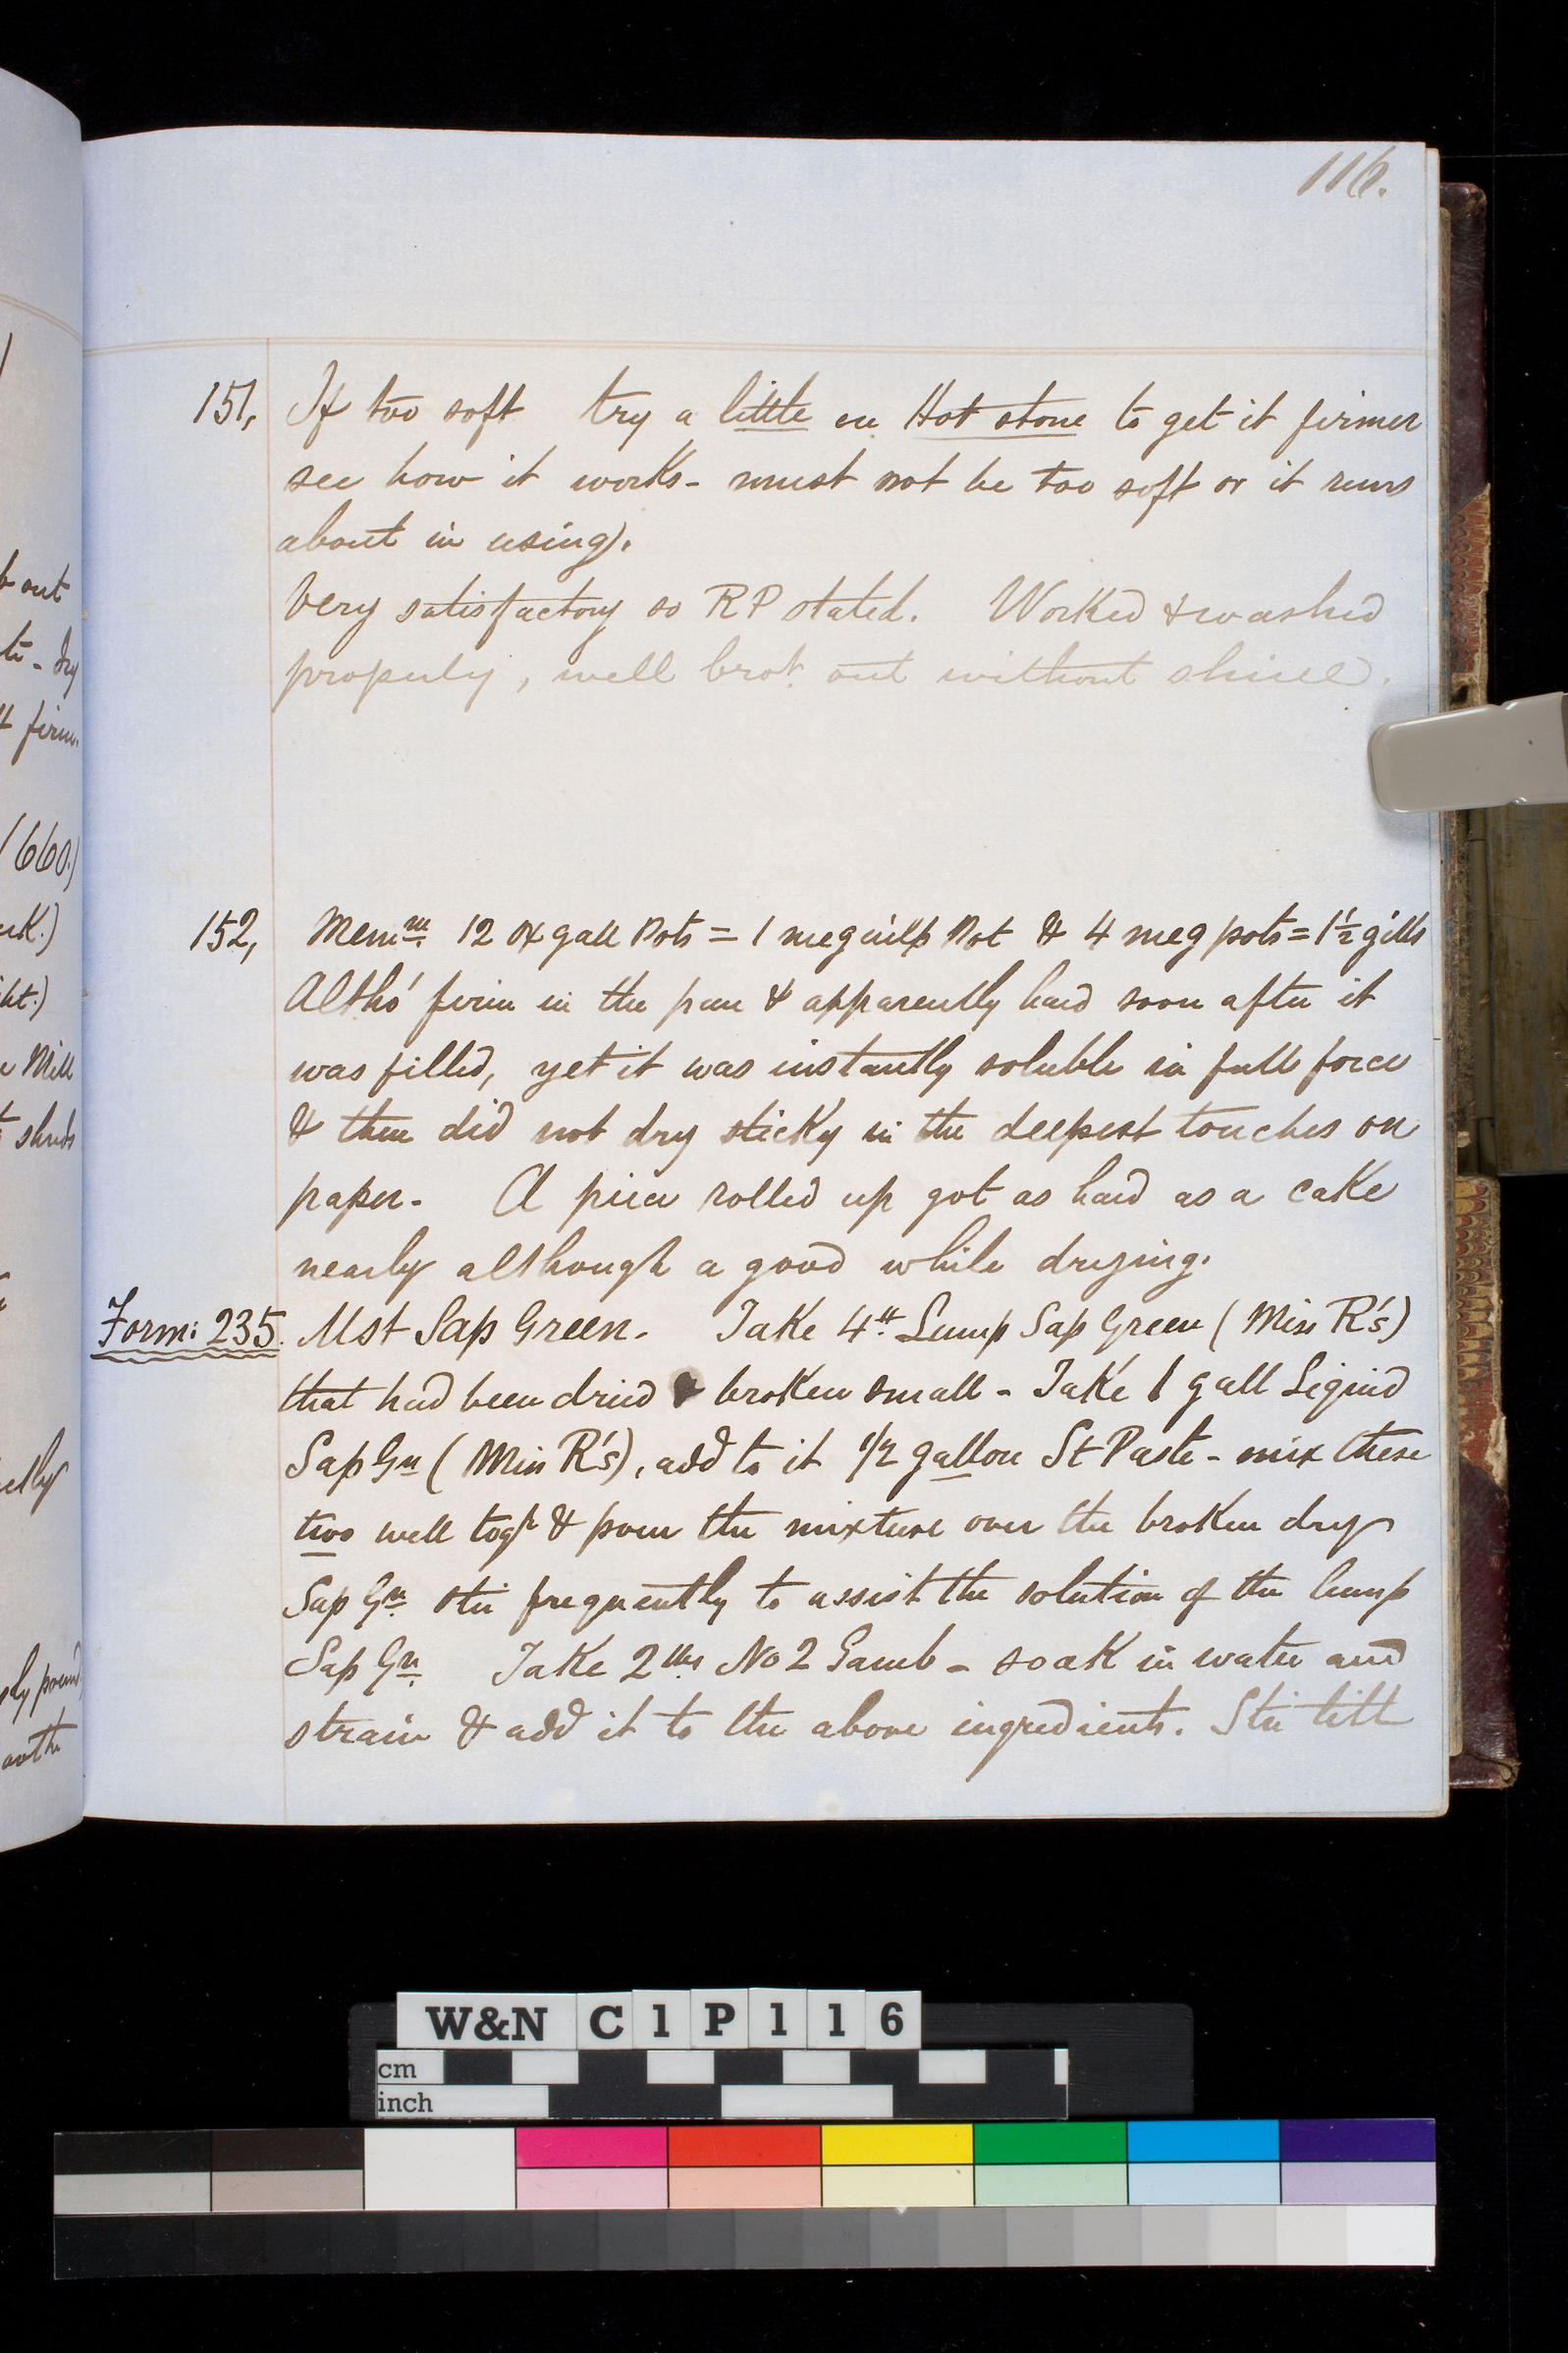 116.
151, If too soft try a little on Hot stone to get it firmer
see how it works - must not be too soft or it runs
about in using).
Very satisfactory so RP stated. Worked & washed
properly, well brot out without shine.
152, Memm. 12 ox gall Pots = 1 meguilp Pot & 4 meg pots = 1 1/2 gills
Altho' firm in the pan & apparently hard soon after it
was filled, yet it was instantly soluble in full force
& then did not dry sticky in the deepest touches on
paper - A piece rolled up got as hard as a cake
nearly although a good while drying.
Form: 235. Mst Sap Green. Take 4 lb Lump Sap Green (Miss R's)
that had been dried & broken small - Take 1 gall Liquid
Sap Gn (Miss R's), add to it 1/2 gallon St Paste - mix these
two well togr & pour the mixture over the broken dry
Sap Gn. stir frequently to assist the solution of the lump
Sap Gn. Take 2 lbs No 2 Gamb - soak in water and
strain & add it to the above ingredients. Stir till
b out
te - dry
firm.
660.)
rk.)
ht.)
Mill
shreds
pound
W&N C1P116
cm
inch